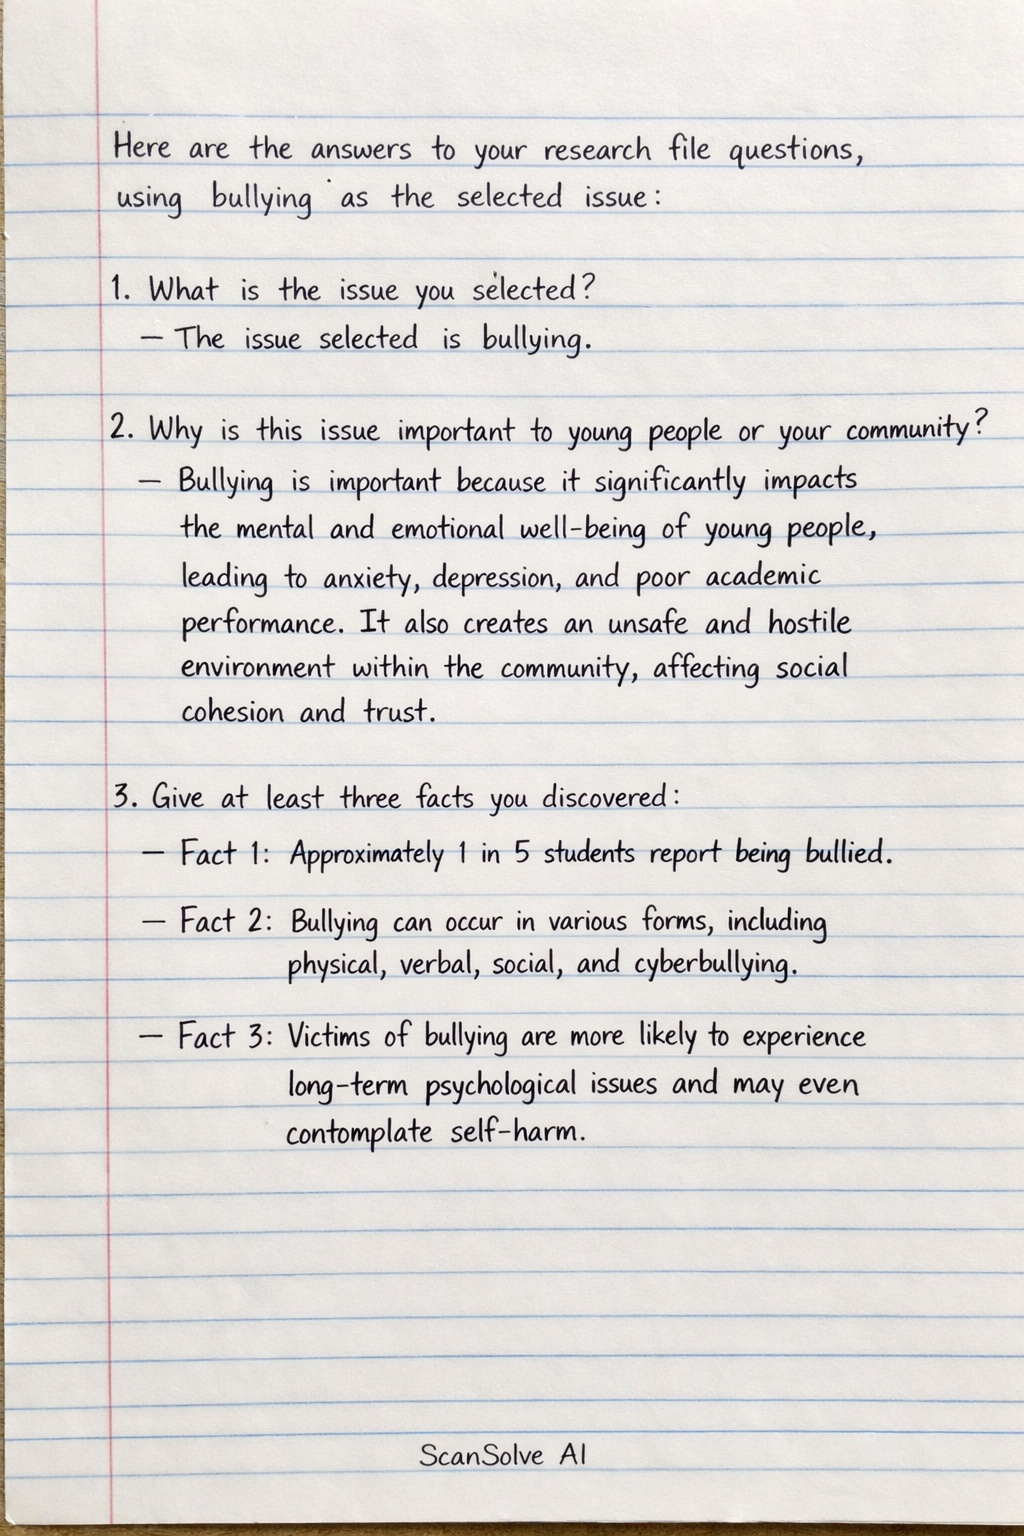 Here are the answers to your research file questions,
using bullying as the selected issue:
1. What is the issue you selected?
— The issue selected is bullying.
2. Why is this issue important to young people or your community?
— Bullying is important because it significantly impacts
the mental and emotional well-being of young people,
leading to anxiety, depression, and poor academic
performance. It also creates an unsafe and hostile
environment within the community, affecting social
cohesion and trust.
3. Give at least three facts you discovered:
— Fact 1: Approximately 1 in 5 students report being bullied.
— Fact 2: Bullying can occur in various forms, including
physical, verbal, social, and cyberbullying.
— Fact 3: Victims of bullying are more likely to experience
long-term psychological issues and may even
contomplate self-harm.
ScanSolve AI